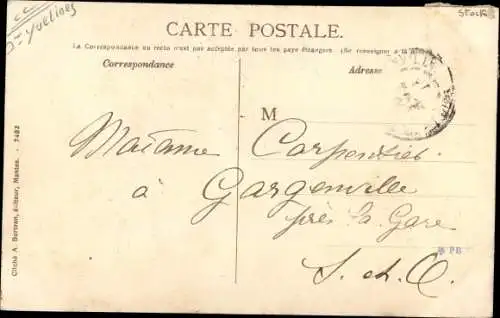 Dt Yvelines
STOCK
CARTE POSTALE.
La Correspondance au recto n'est pas acceptée par tous les pays étrangers. (Se renseigner à la
Correspondance
Adresse
M
Madame Carpentier
à Gargenville
près la Gare
S. et O.
PB
Cliché A. Bertran, éditeur, Mantes. - 7492